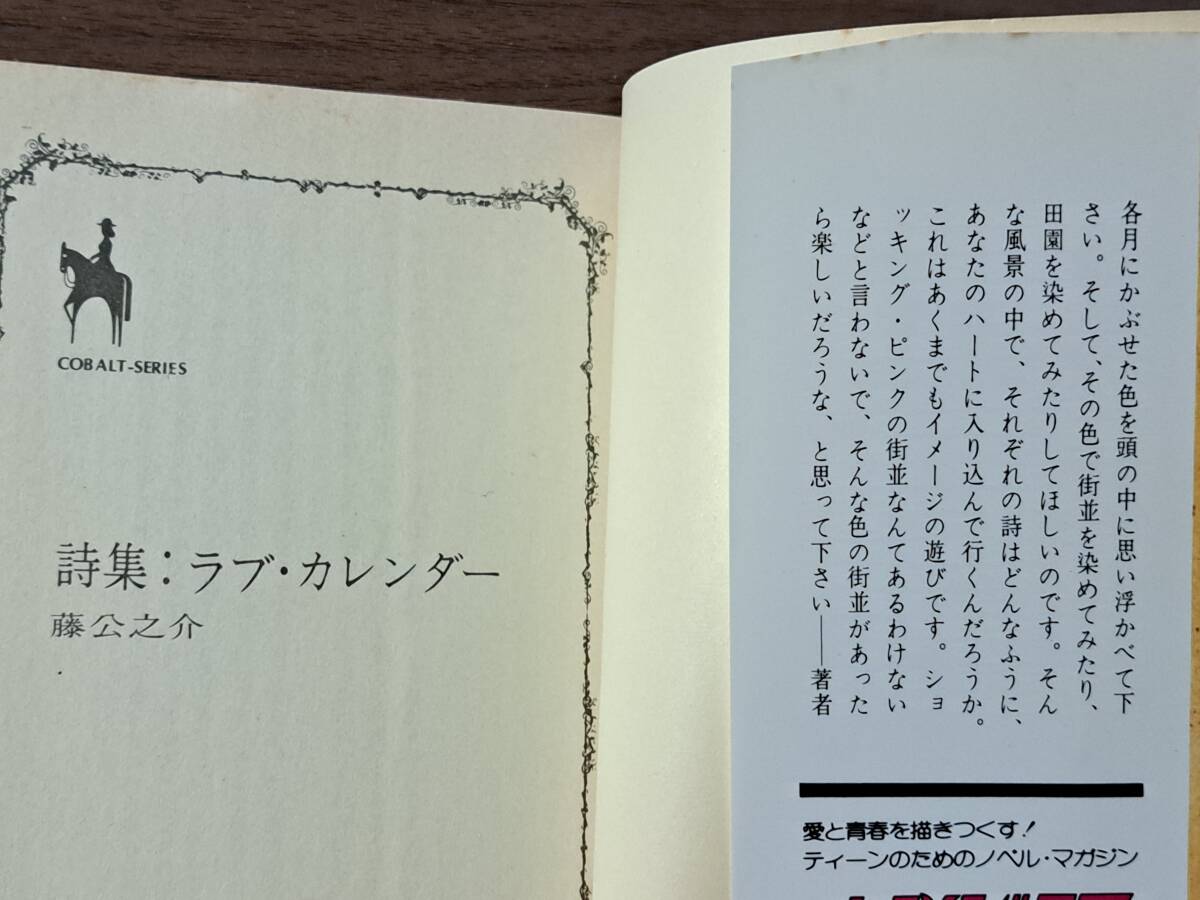 COBALT-SERIES
詩集：ラブ・カレンダー
藤公之介
各月にかぶせた色を頭の中に思い浮かべて下
さい。そして、その色で街並を染めてみたり、
田園を染めてみたりしてほしいのです。そん
な風景の中で、それぞれの詩はどんなふうに、
あなたのハートに入り込んで行くんだろうか。
これはあくまでもイメージの遊びです。ショ
ッキング・ピンクの街並なんてあるわけない
などと言わないで、そんな色の街並があった
ら楽しいだろうな、と思って下さい――著者
愛と青春を描きつくす！
ティーンのためのノベル・マガジン